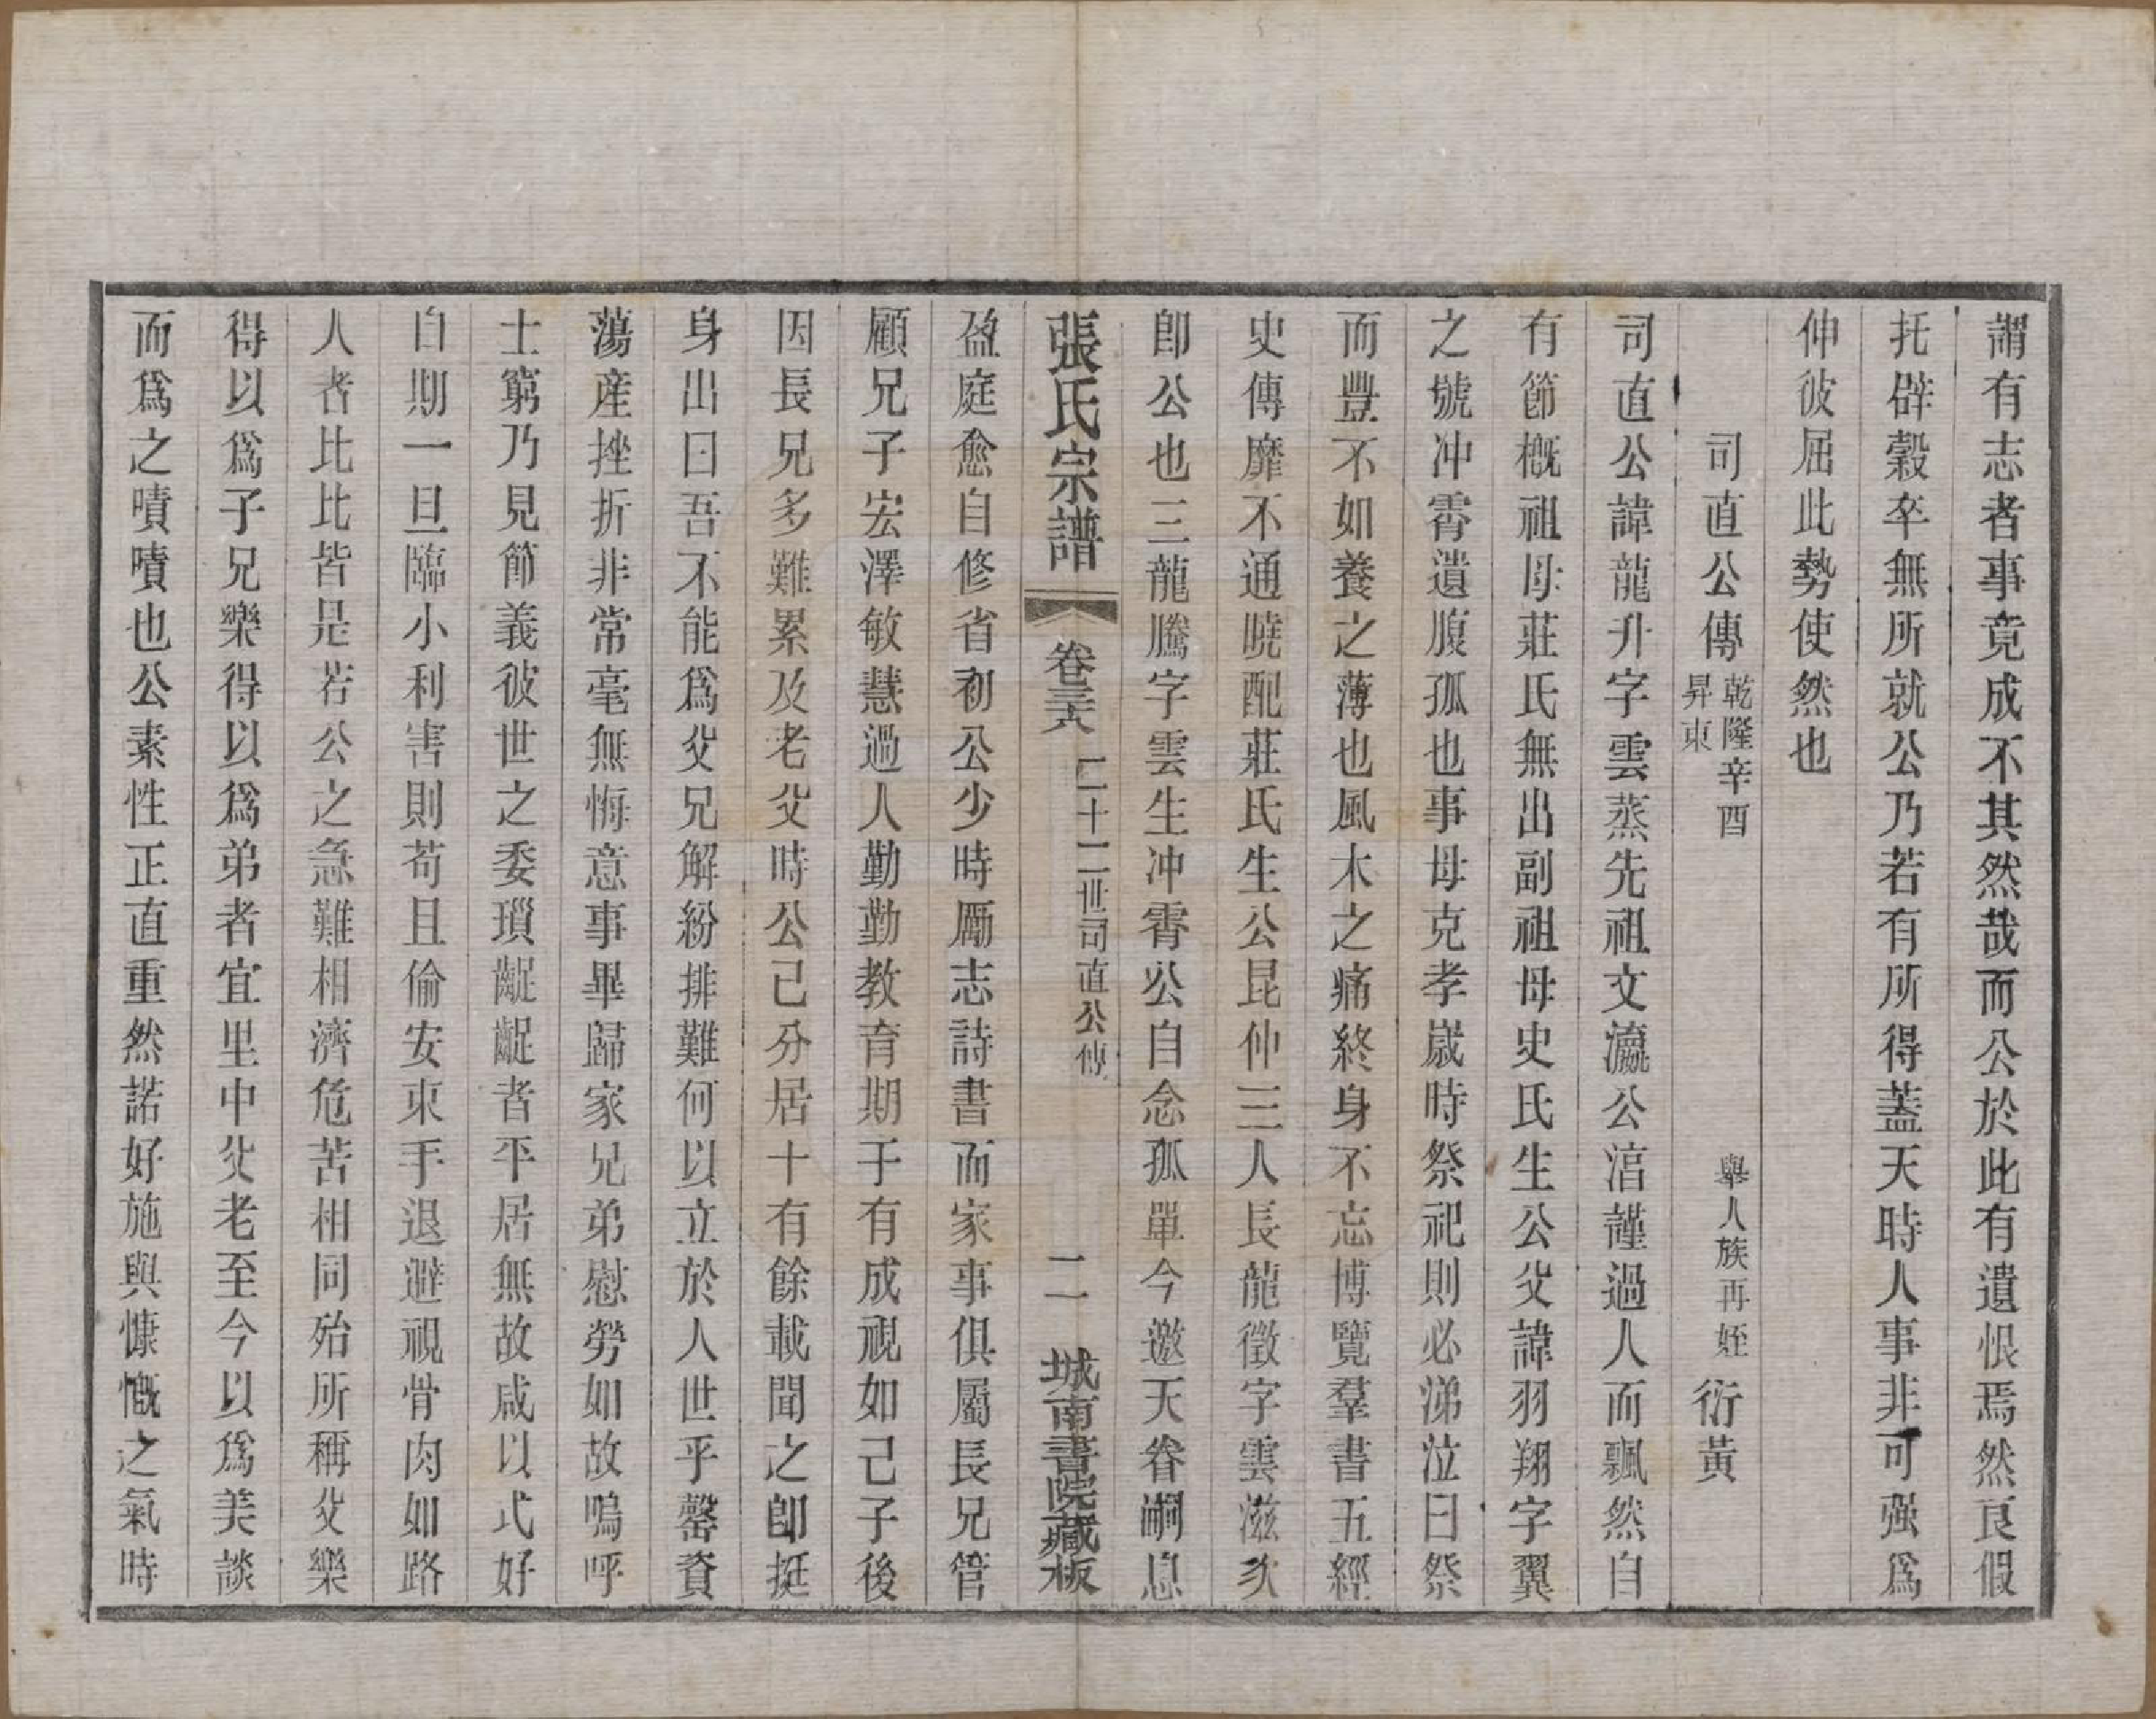 謂有志者事竟成不其然哉而公於此有遺恨焉然良假
托辟穀卒無所就公乃若有所得蓋天時人事非可强爲
伸彼屈此勢使然也
司直公傳 乾隆辛酉 舉人族再姪 衍黃
昇東
司直公諱龍升字雲蒸先祖文瀛公涪謹過人而飄然自
有節槪祖母莊氏無出副祖母史氏生公父諱羽翔字翼
之號冲霄遺腹孤也事母克孝歲時祭祀則必涕泣曰祭
而豐不如養之薄也風木之痛終身不忘博覽羣書五經
史傳靡不通曉配莊氏生公昆仲三人長龍徵字雲滋次
卽公也三龍騰字雲生冲霄公自念孤單今邀天眷嗣息
張氏宗譜 卷三六 二十二世司直公傳 二 城南書院藏板
盈庭愈自修省初公少時勵志詩書而家事俱屬長兄管
顧兄子宏澤敏慧過人勤勤教育期于有成視如己子後
因長兄多難累及老父時公已分居十有餘載聞之卽挺
身出曰吾不能爲父兄解紛排難何以立於人世乎罄資
蕩産挫折非常毫無悔意事畢歸家兄弟慰勞如故嗚呼
士窮乃見節義彼世之委瑣齷齪者平居無故咸以式好
自期一旦臨小利害則苟且偷安束手退避視骨肉如路
人者比比皆是若公之急難相濟危苦相同殆所稱父樂
得以爲子兄樂得以爲弟者宜里中父老至今以爲美談
而爲之嘖嘖也公素性正直重然諾好施與慷慨之氣時